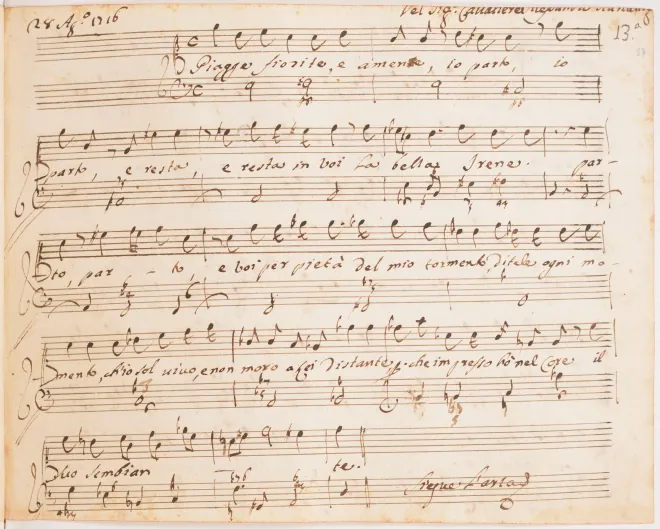 28 Ag.º 1716
Del Sig. Cavaliere
13.ª
Piagge fiorite, e amene, io parto, io
parto, e resta, e resta in voi la bella Irene. par-
to, par - to, e voi per pietà del mio tormento, ditele ogni mo-
mento, ch'io sol vivo, e non moro a lei distante, che impresso hò nel core il
suo sembian te.
Siegue l'aria